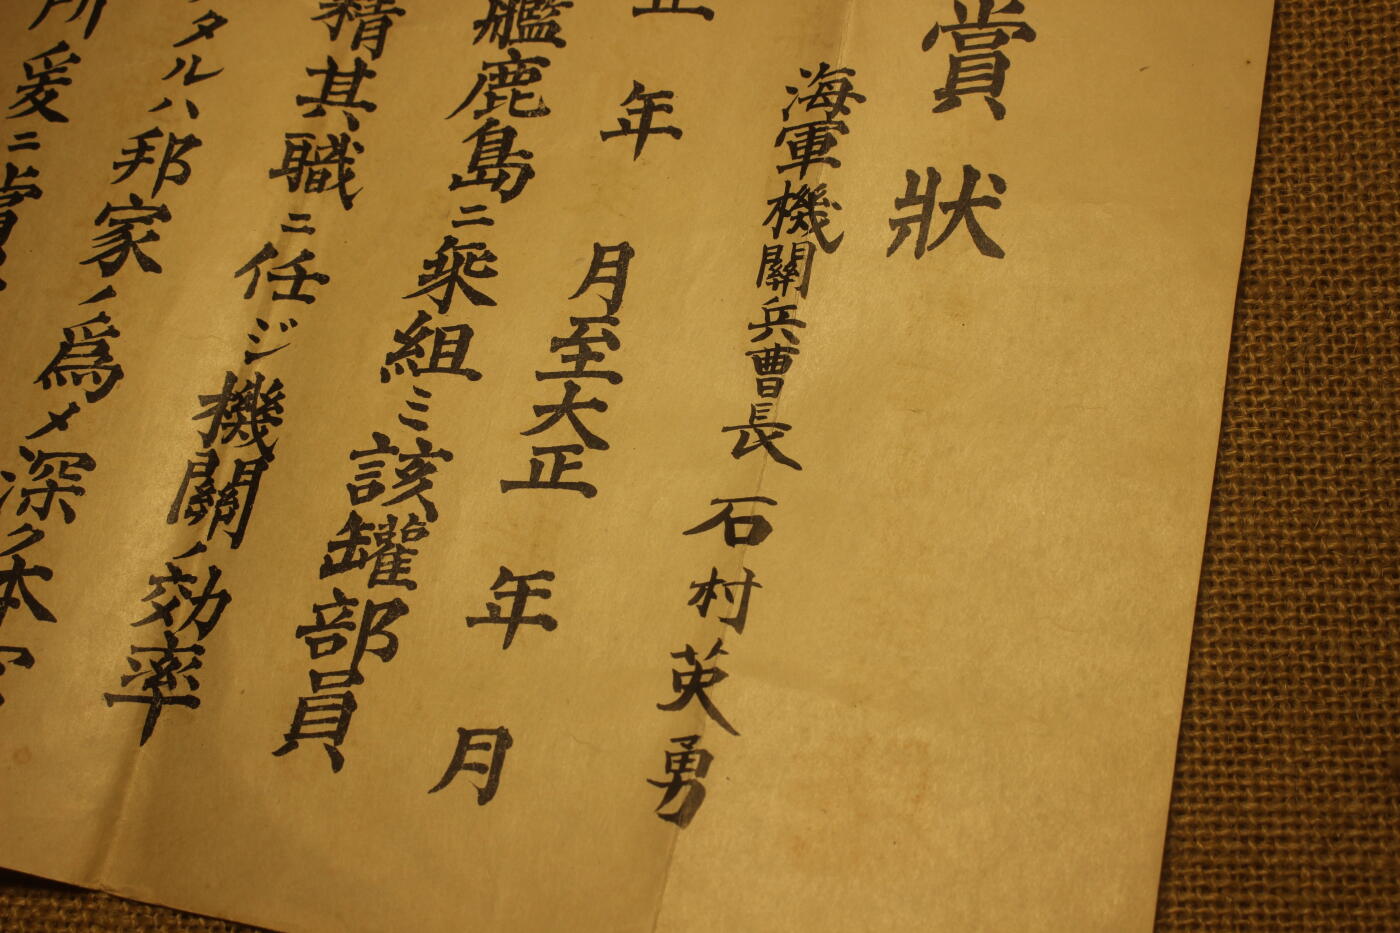 賞狀
海軍機關兵曹長 石村英勇
正 年 月至大正 年 月
艦鹿島ニ乘組ミ該罐部員
精其職ニ任ジ機關ノ効率
タルハ邦家ノ爲メ深ク本
所爰ニ賞